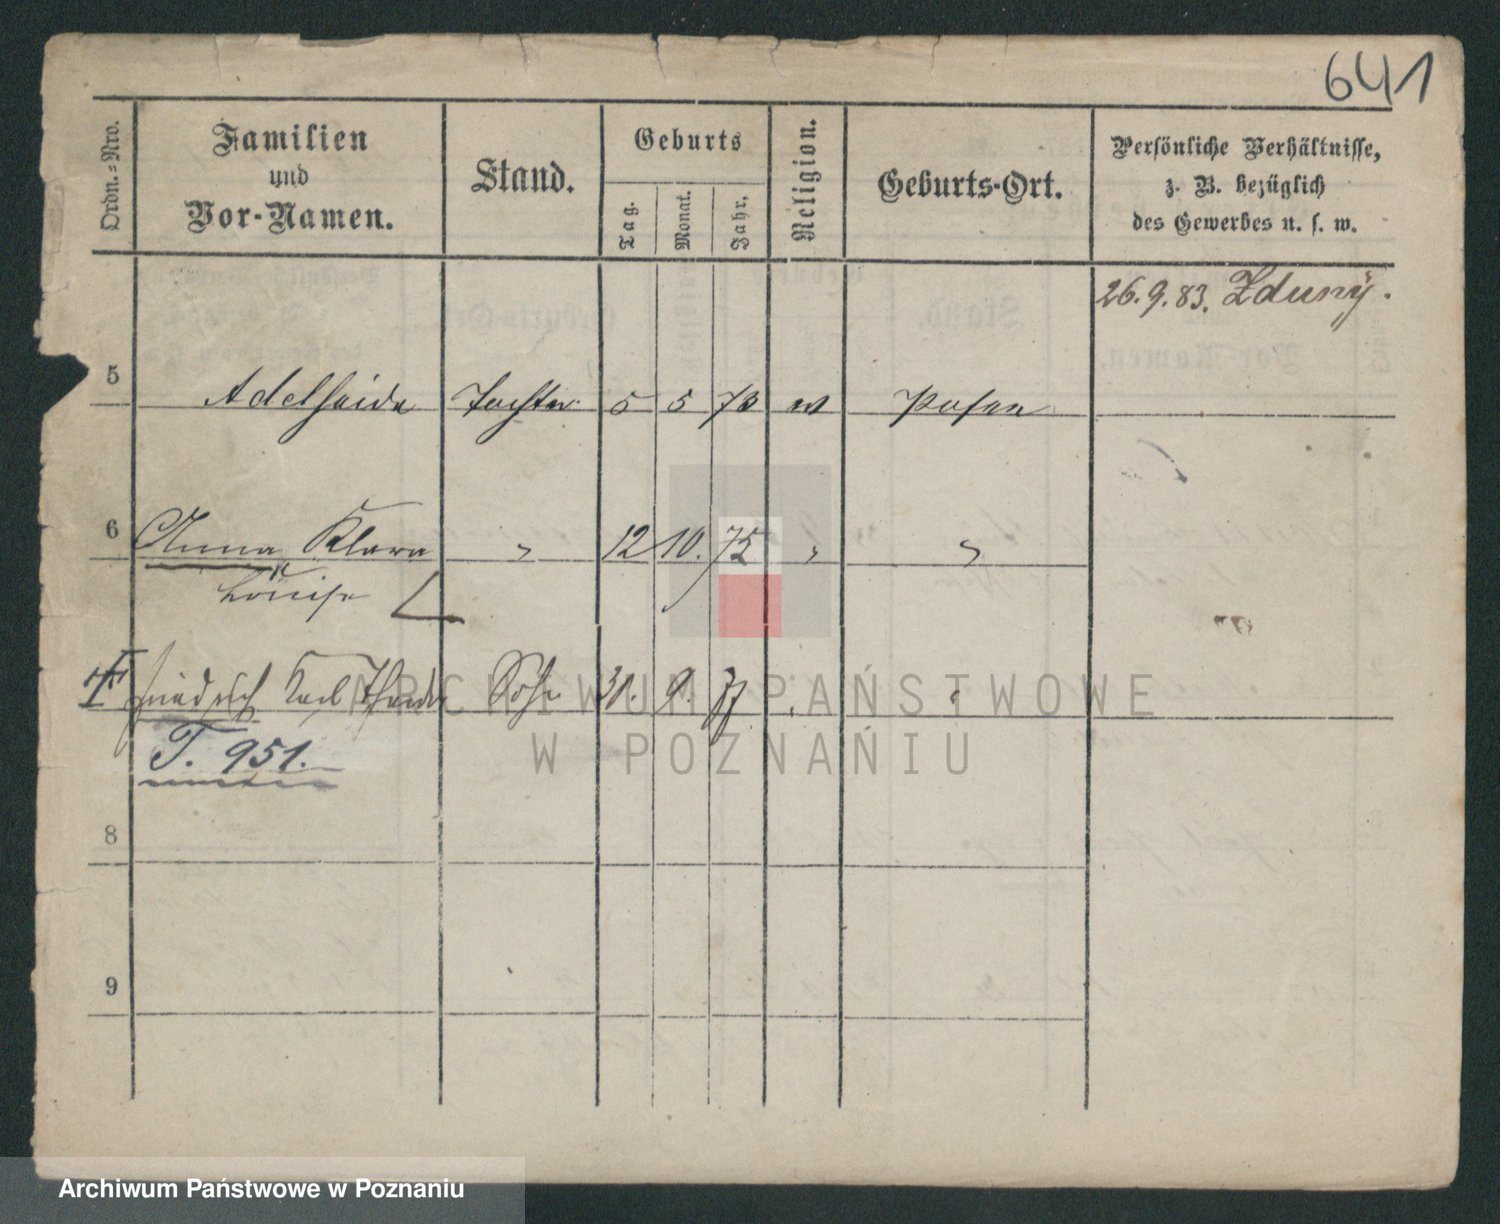 641
Ordn.-Nro.
Familien
und
Vor-Namen.
Stand.
Geburts
Tag.
Monat.
Jahr.
Religion.
Geburts-Ort.
Persönliche Verhältnisse,
z. B. bezüglich
des Gewerbes u. s. w.
26.9.83. Zduny.
5 Adelheide Tochter 5 5 73 ev Posen
6 Anna Klara " 12 10. 75 " "
Louise
7 Friedrich Karl Sohn 31. 9. 77
T. 951.
8
9
ARCHIWUM PAŃSTWOWE
W POZNANIU
Archiwum Państwowe w Poznaniu